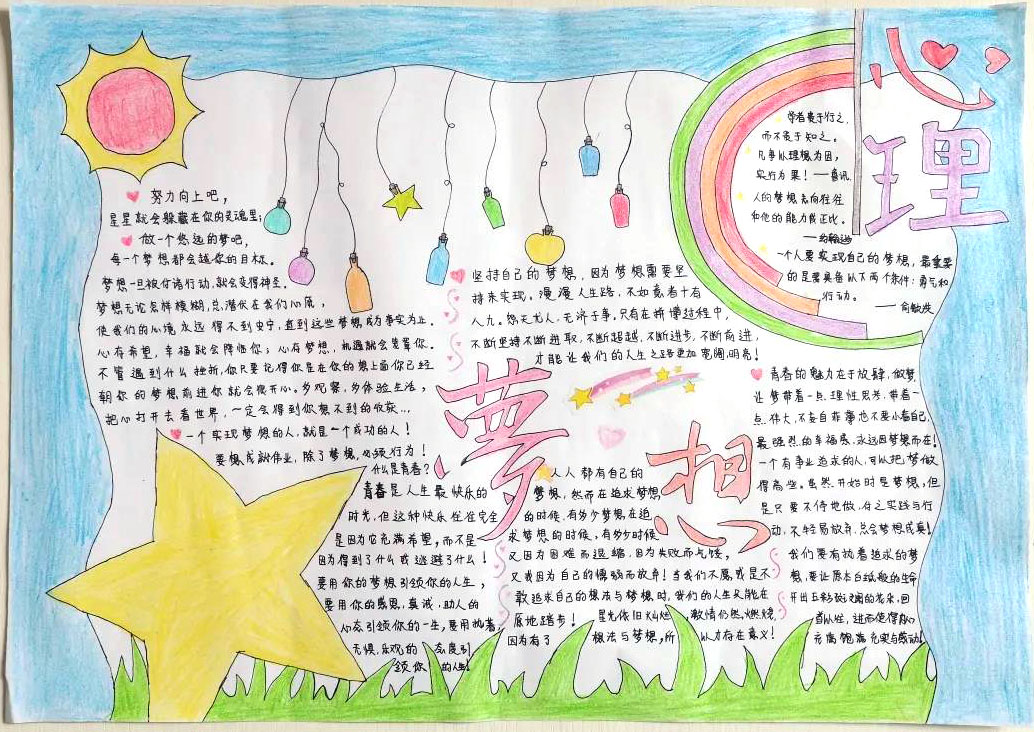 心理
学者贵于行之,
而不贵于知之。
凡事以理想为因,
实行为果!——鲁讯
人的梦想志向往往
和他的能力成正比。
——约翰逊
一个人要实现自己的梦想,最重要
的是要具备以下两个条件:勇气和
行动。
——俞敏洪
努力向上吧,
星星就会躲藏在你的灵魂里;
做一个悠远的梦吧,
每一个梦想都会越你的目标。
梦想一旦被付诸行动,就会变得神圣。
梦想无论怎样模糊,总潜伏在我们心底,
使我们的心境永远得不到安宁,直到这些梦想成为事实为止。
心存希望,幸福就会降临你;心存梦想,机遇就会笼罩你。
不管遇到什么挫折,你只要记得你是在你的想上面你已经
朝你的梦想前进你就会很开心。多观察,多体验生活,
把心打开去看世界,一定会得到你想不到的收获...
一个实现梦想的人,就是一个成功的人!
要想成就伟业,除了梦想,必须行为!
坚持自己的梦想,因为梦想需要坚
持来实现。漫漫人生路,不如意者十有
八九。怨天尤人,无济于事,只有在拼搏过程中,
不断坚持不断进取,不断超越,不断进步,不断前进,
才能让我们的人生之路更加宽阔,明亮!
夢想
什么是青春?
青春是人生最快乐的
时光,但这种快乐往往完全
是因为它充满希望,而不是
因为得到了什么或逃避了什么!
要用你的梦想引领你的人生,
要用你的感恩,真诚,助人的
心态引领你的一生,要用执着,
无惧,乐观的态度引
领你的人生!
人人都有自己的
梦想,然而在追求梦想
的时候,有多少梦想在追
求梦想的时候,有多少时候
又因为困难而退缩,因为失败而气馁,
又或因为自己的懦弱而放弃!当我们不愿或是不
敢追求自己的想法与梦想时,我们的人生又能在
原地踏步!星光依旧灿烂,激情仍然燃烧
因为有了想法与梦想,所以才存在意义!
青春的魅力在于放肆,做梦
让梦带着一点理性思考,带着一
点伟大,不妄自菲薄也不要小看自己,
最强烈的幸福感,永远因梦想而在!
一个有事业追求的人,可以把梦做
得高些。虽然开始时是梦想,但
是只要不停地做,付之实践与行
动,不轻易放弃,总会梦想成真!
我们要有执着追求的梦
想,要让原本白纸般的生命
开出五彩斑斓的花朵,回
首从往,进而使得内心
充满饱满充实与感动!